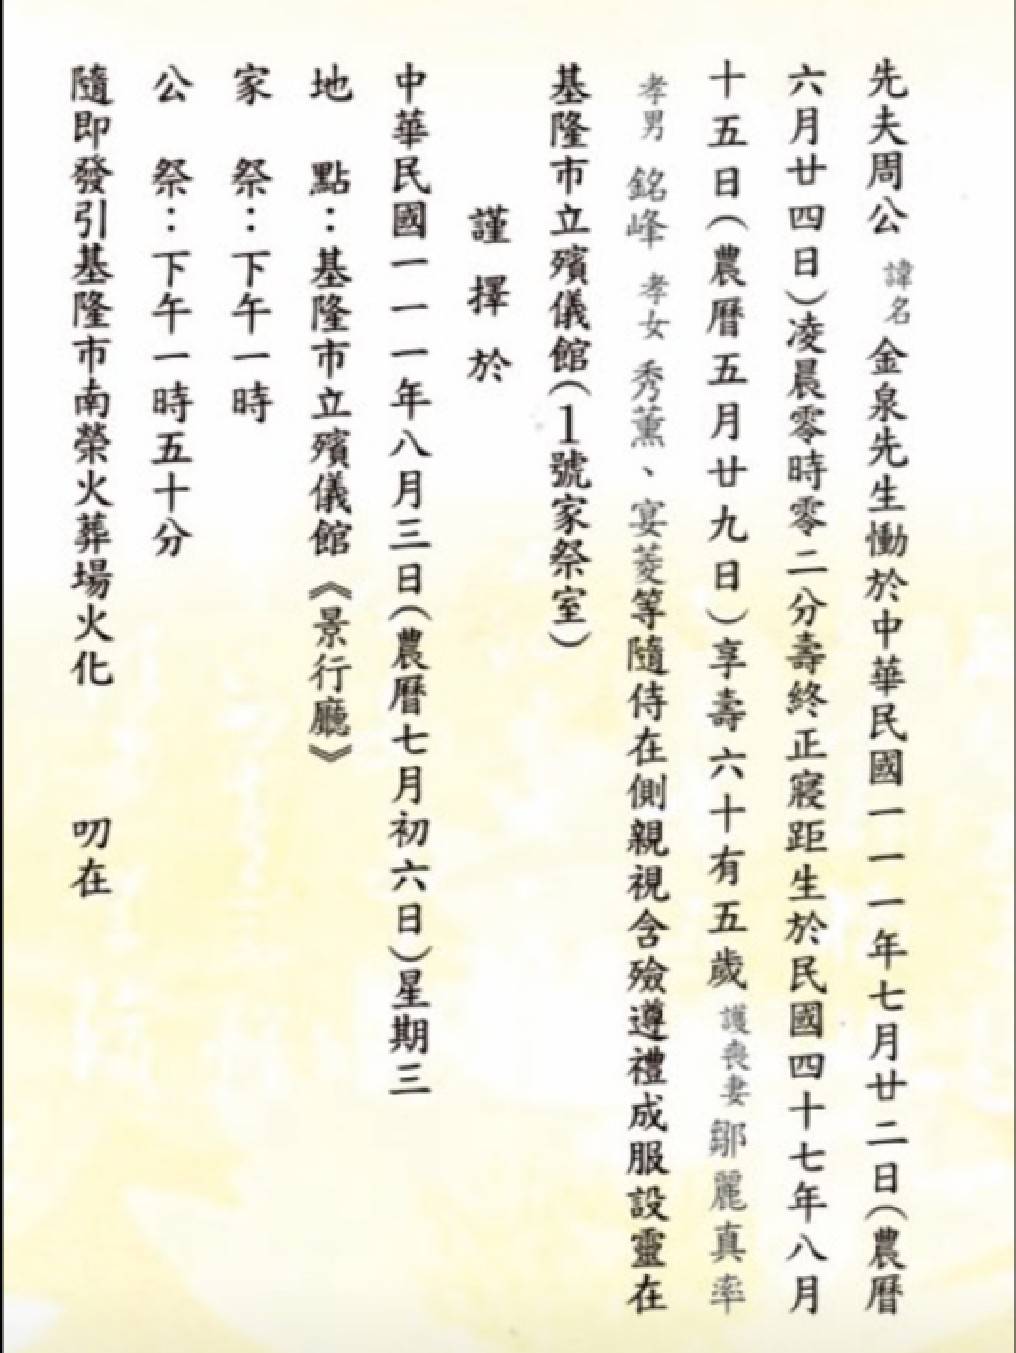 先夫周公諱名金泉先生慟於中華民國一一一年七月廿二日(農曆
六月廿四日)凌晨零時零二分壽終正寢距生於民國四十七年八月
十五日(農曆五月廿九日)享壽六十有五歲護喪妻鄒麗真率
孝男銘峰孝女秀薰、宴菱等隨侍在側親視含殮遵禮成服設靈在
基隆市立殯儀館(1號家祭室)
謹擇於
中華民國一一一年八月三日(農曆七月初六日)星期三
地 點：基隆市立殯儀館《景行廳》
家 祭：下午一時
公 祭：下午一時五十分
隨即發引基隆市南榮火葬場火化 叨在